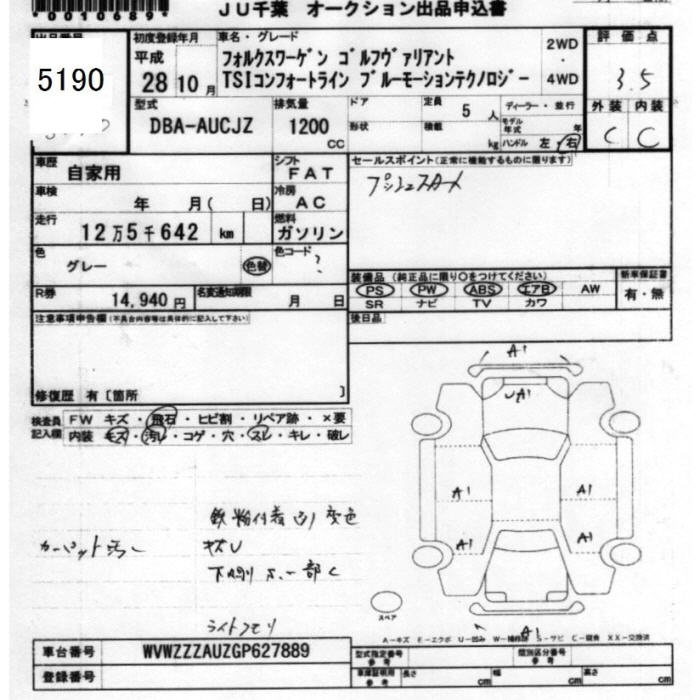 *0010689*
JU千葉 オークション出品申込書
出品番号
5190
初度登録年月
平成
28 10 月
車名・グレード
フォルクスワーゲン ゴルフヴァリアント
TSIコンフォートライン ブルーモーションテクノロジー
2WD
・
4WD
評価点
3.5
外装 内装
C C
型式
DBA-AUCJZ
排気量
1200
CC
ドア
形状
定員
5 人
積載
kg
ディーラー・並行
モデル年式 年
ハンドル 左・右
車歴
自家用
シフト
FAT
車検
年 月( 日)
冷房
AC
走行
12万5千642 km
燃料
ガソリン
色
グレー
色替
色コード
?
R券
14,940 円
名変通知期限
月 日
セールスポイント(正常に機能するものに限ります)
プッシュスタート
装備品 (純正品に限り○をつけてください)
PS PW ABS エアB AW
SR ナビ TV カワ
新車保証書
有・無
後日品
注意事項申告欄(不具合内容等は具体的に記入して下さい)
修復歴 有〔箇所 〕
検査員記入欄
FW キズ・飛石・ヒビ割・リペア跡・×要
内装 キズ・汚レ・コゲ・穴・スレ・キレ・破レ
鉄粉付着 変色
カーペット汚レ
キズU
下廻り 一部
ライトクモリ
A1
UA1
A1
A1
A1
A1
A1
スペア
A-キズ E-エクボ U-凹み W-補修跡 S-サビ C-腐食 XX-交換済
車台番号
WVWZZZAUZGP627889
登録番号
型式指定番号
参考
類別区分番号
参考
車庫証明用
参考
長さ cm
幅 cm
高さ cm